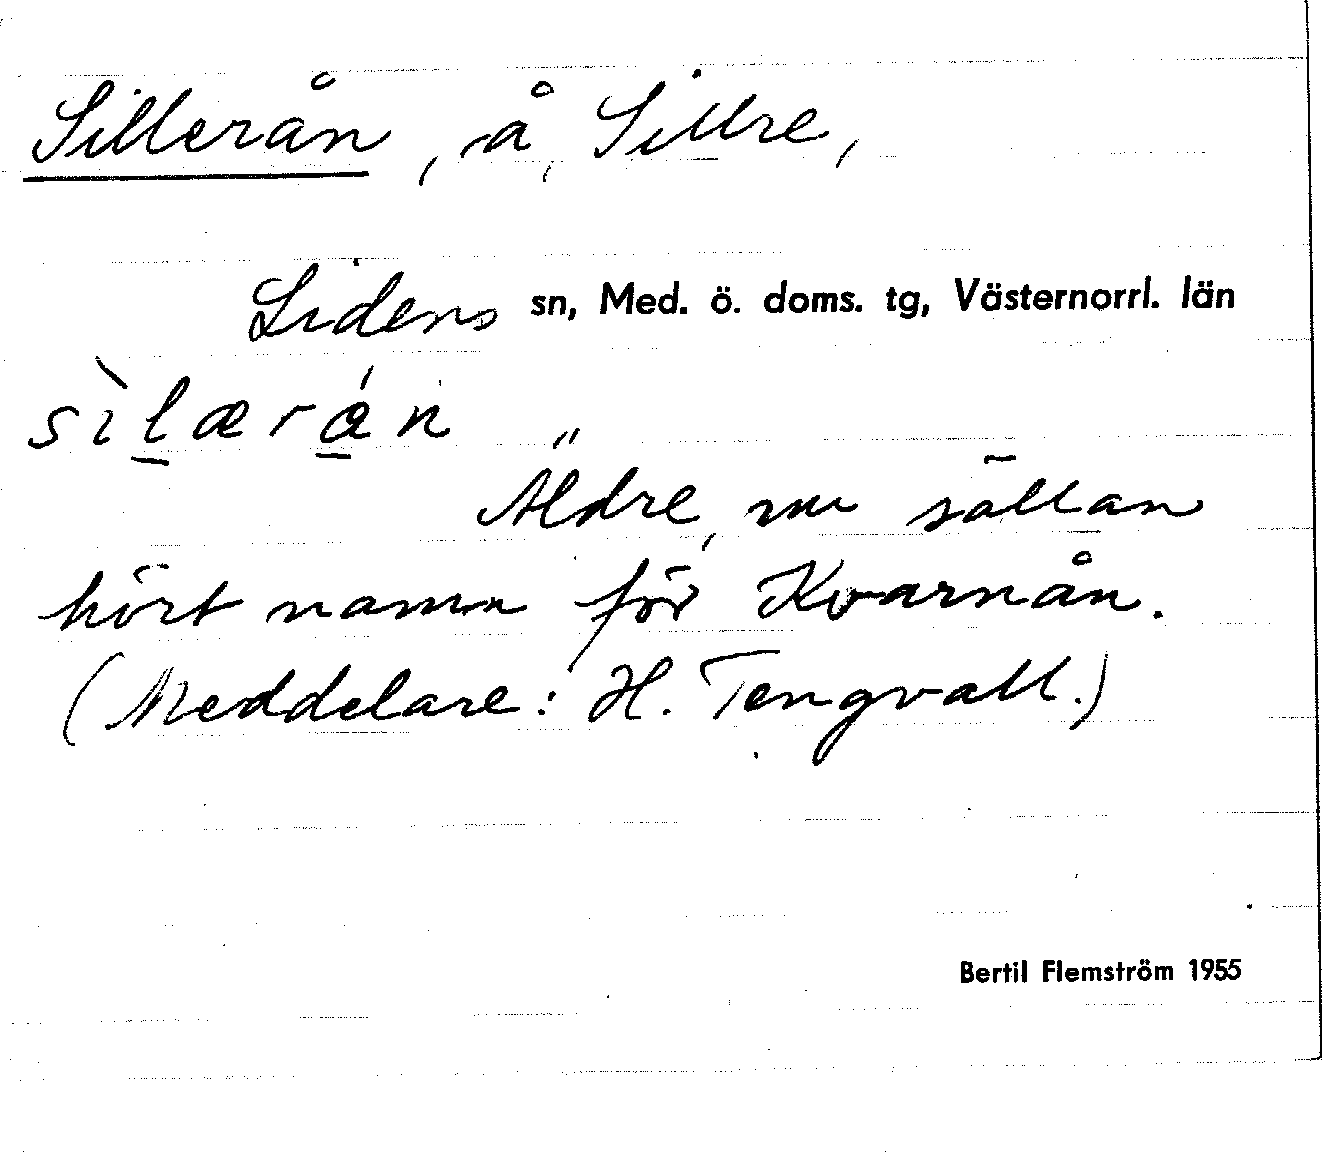 Sillerån, å, Sillre,
Lidens sn, Med. ö. doms. tg, Västernorrl. län
sìlærån
Äldre, nu sällan
hört namn för Kvarnån.
(Meddelare: H. Tengvall.)
Bertil Flemström 1955